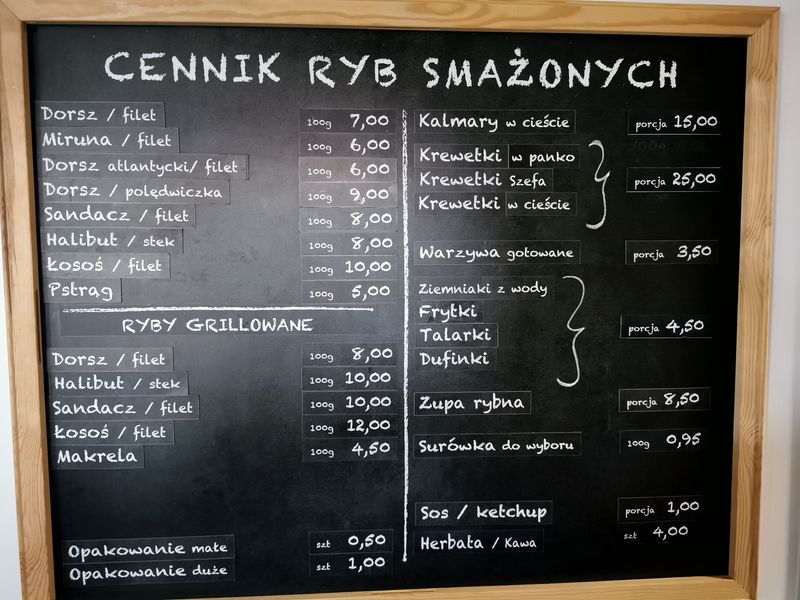 CENNIK RYB SMAŻONYCH
Dorsz / filet 100g 7,00
Miruna / filet 100g 6,00
Dorsz atlantycki/ filet 100g 6,00
Dorsz / polędwiczka 100g 9,00
Sandacz / filet 100g 8,00
Halibut / stek 100g 8,00
Łosoś / filet 100g 10,00
Pstrąg 100g 5,00
RYBY GRILLOWANE
Dorsz / filet 100g 8,00
Halibut / stek 100g 10,00
Sandacz / filet 100g 10,00
Łosoś / filet 100g 12,00
Makrela 100g 4,50
Opakowanie małe szt 0,50
Opakowanie duże szt 1,00
Kalmary w cieście porcja 15,00
Krewetki w panko
Krewetki Szefa porcja 25,00
Krewetki w cieście
Warzywa gotowane porcja 3,50
Ziemniaki z wody
Frytki
Talarki porcja 4,50
Dufinki
Zupa rybna porcja 8,50
Surówka do wyboru 100g 0,95
Sos / ketchup porcja 1,00
Herbata / Kawa szt 4,00